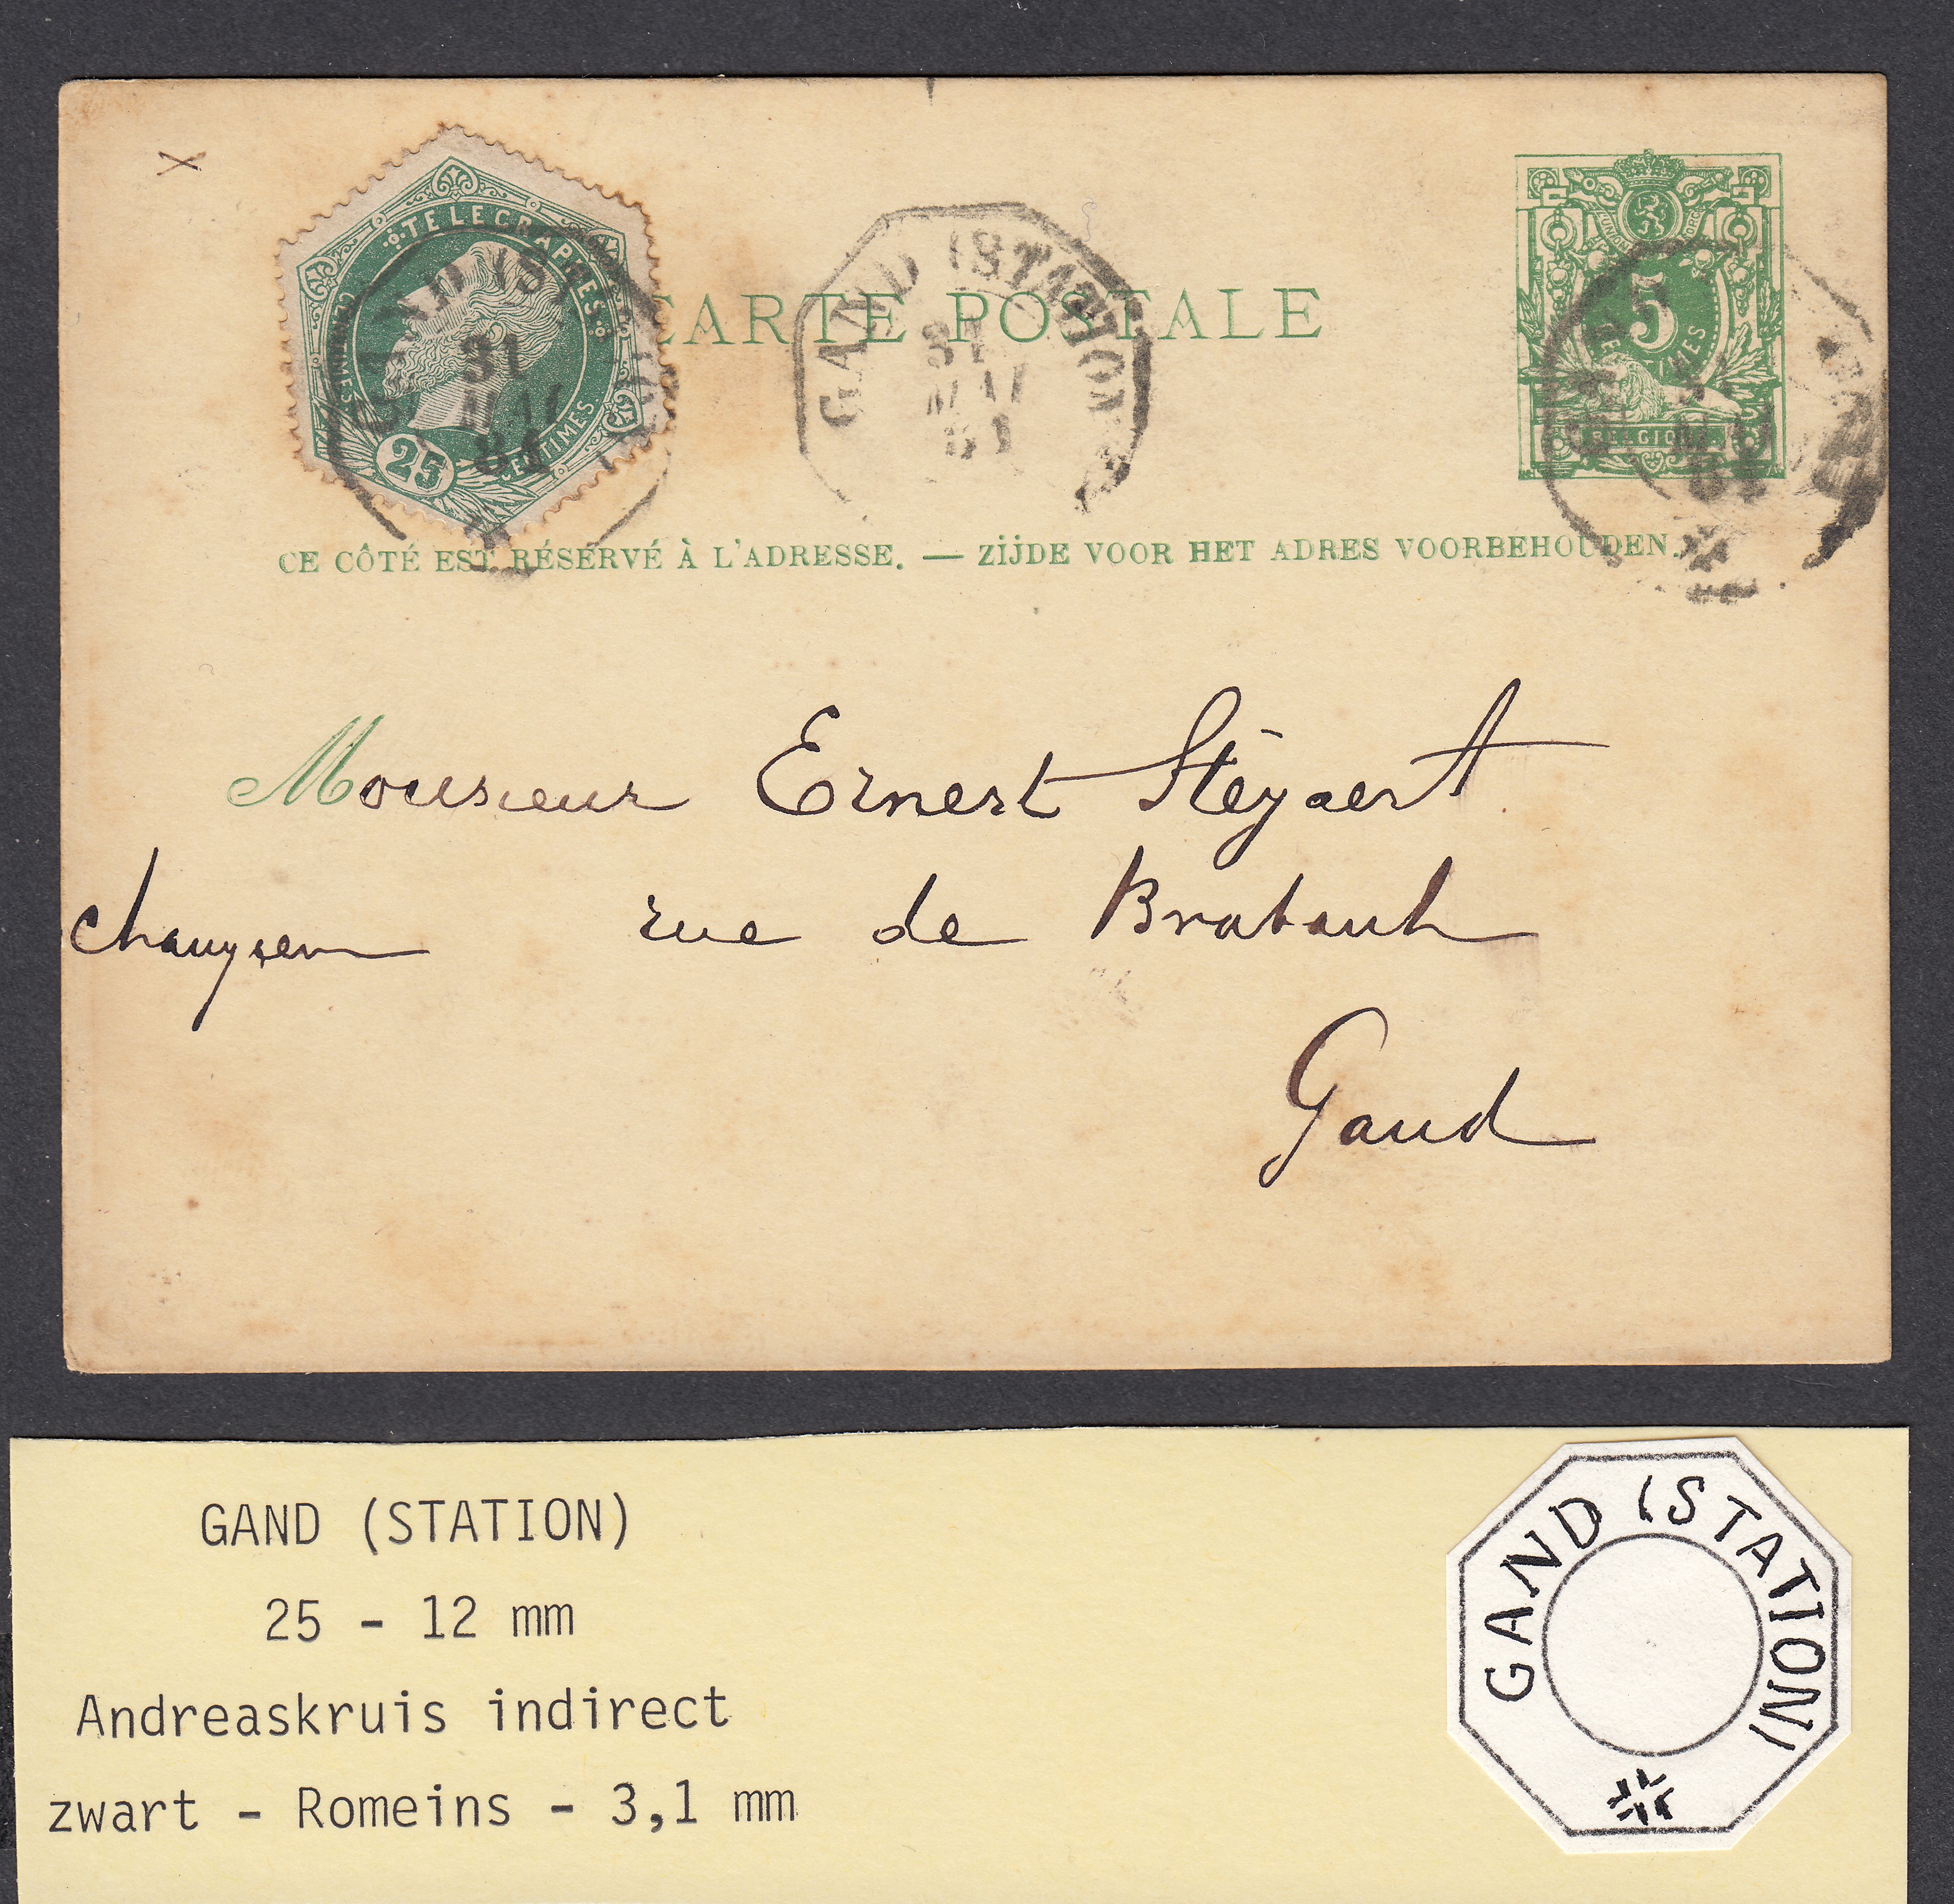 X
TÉLÉGRAPHES
25 CENTIMES
GAND (STATION)
31
MAI
81
CARTE POSTALE
GAND (STATION)
31
MAI
81
5
BELGIQUE
81
CE CÔTÉ EST RÉSERVÉ À L'ADRESSE. — ZIJDE VOOR HET ADRES VOORBEHOUDEN.
Monsieur Ernest Steyaert
rue de Brabant
Gand
GAND (STATION)
25 - 12 mm
Andreaskruis indirect
zwart - Romeins - 3,1 mm
GAND (STATION)